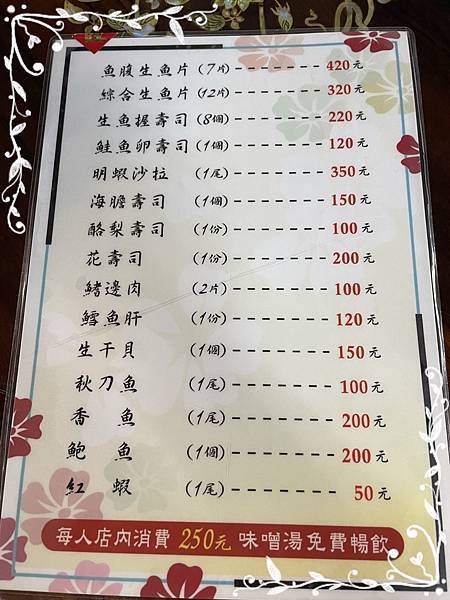 魚腹生魚片 (7片) -------- 420元
綜合生魚片 (12片) -------- 320元
生魚握壽司 (8個) -------- 220元
鮭魚卵壽司 (1個) -------- 120元
明蝦沙拉 (1尾) -------- 350元
海膽壽司 (1個) -------- 150元
酪梨壽司 (1份) -------- 100元
花壽司 (1份) -------- 200元
鰭邊肉 (2片) -------- 100元
鱈魚肝 (1份) -------- 120元
生干貝 (1個) -------- 150元
秋刀魚 (1尾) -------- 100元
香魚 (1尾) -------- 200元
鮑魚 (1個) -------- 200元
紅蝦 (1尾) -------- 50元
每人店內消費 250元 味噌湯免費暢飲